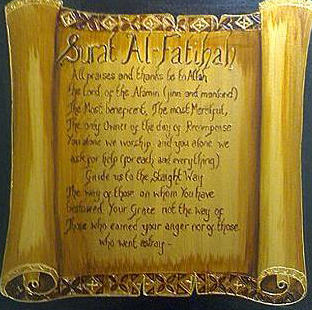 Surat Al-Fatihah
All praises and thanks be to Allah
the lord of the Alamin (jinn and mankind)
The Most beneficent, The most Merciful,
The only Owner of the day of Recompense
You alone we worship, and you alone we
ask for help (for each and everything)
Guide us to the Staight Way
The way of those on whom You have
bestowed Your Grace not the way of
Those who earned your anger nor of those
who went astray -